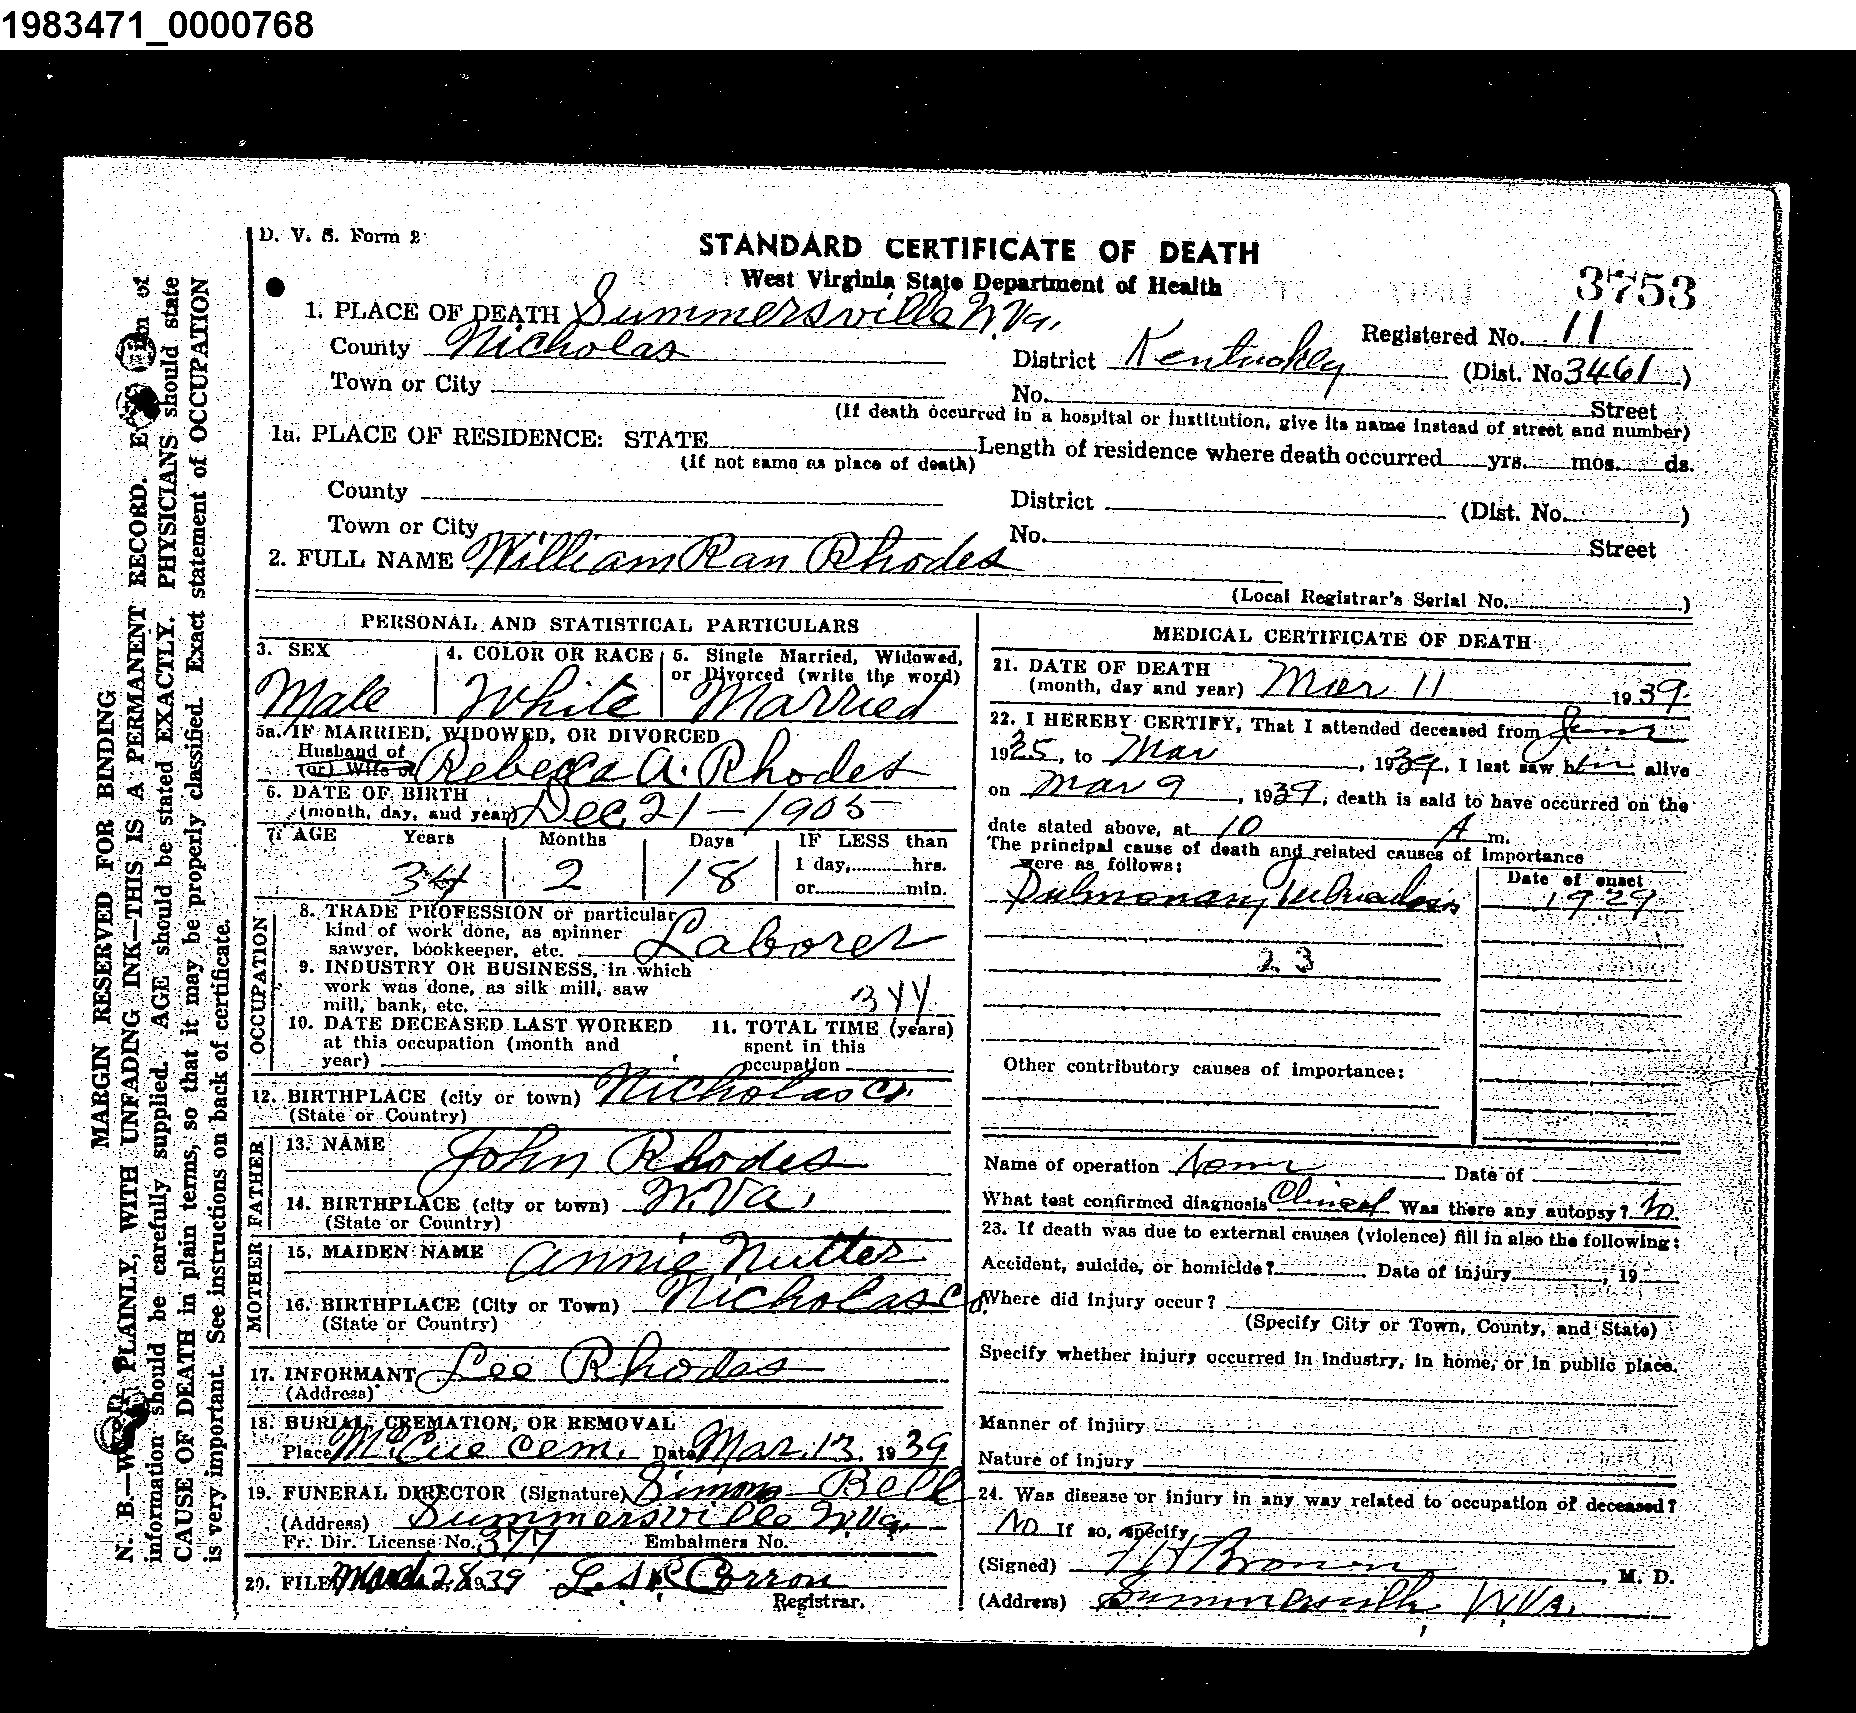 1983471_0000768
D. V. S. Form 2
STANDARD CERTIFICATE OF DEATH
West Virginia State Department of Health
3753
1. PLACE OF DEATH Summersville W.Va.
Registered No. 11
County Nicholas
District Kentucky (Dist. No 3461 )
Town or City
No. Street
(If death occurred in a hospital or institution, give its name instead of street and number)
1a. PLACE OF RESIDENCE: STATE Length of residence where death occurred yrs. mos. ds.
(If not same as place of death)
County
District (Dist. No. )
Town or City
No. Street
2. FULL NAME William Ran Rhodes
(Local Registrar's Serial No. )
PERSONAL AND STATISTICAL PARTICULARS
3. SEX
Male
4. COLOR OR RACE
White
5. Single Married, Widowed,
or Divorced (write the word)
Married
5a. IF MARRIED, WIDOWED, OR DIVORCED
Husband of
(or) Wife of Rebecca A. Rhodes
6. DATE OF BIRTH
(month, day, and year) Dec. 21 - 1905
7. AGE Years Months Days IF LESS than
34 2 18 1 day, hrs.
or min.
OCCUPATION
8. TRADE PROFESSION or particular
kind of work done, as spinner
sawyer, bookkeeper, etc. Laborer
9. INDUSTRY OR BUSINESS, in which
work was done, as silk mill, saw
mill, bank, etc.
10. DATE DECEASED LAST WORKED
at this occupation (month and
year)
11. TOTAL TIME (years)
spent in this
occupation
12. BIRTHPLACE (city or town) Nicholas Co.
(State or Country)
FATHER
13. NAME John Rhodes
14. BIRTHPLACE (city or town) W.Va.
(State or Country)
MOTHER
15. MAIDEN NAME Annie Nutter
16. BIRTHPLACE (City or Town) Nicholas Co.
(State or Country)
17. INFORMANT Lee Rhodes
(Address)
18. BURIAL, CREMATION, OR REMOVAL
Place McCue Cem. Date Mar. 13, 1939
19. FUNERAL DIRECTOR (Signature) Simms - Bell
(Address) Summersville W.Va.
Fr. Dir. License No. 377 Embalmers No.
20. FILED March 28 1939 Corron
Registrar.
MEDICAL CERTIFICATE OF DEATH
21. DATE OF DEATH
(month, day and year) Mar 11 1939.
22. I HEREBY CERTIFY, That I attended deceased from June
1935, to Mar, 1939, I last saw him alive
on Mar 9, 1939, death is said to have occurred on the
date stated above, at 10 A m.
The principal cause of death and related causes of importance
were as follows:
Date of onset
Pulmonary Tuberculosis 1929
23
Other contributory causes of importance:
Name of operation None Date of
What test confirmed diagnosis Clinical Was there any autopsy? No.
23. If death was due to external causes (violence) fill in also the following:
Accident, suicide, or homicide? Date of injury , 19
Where did injury occur?
(Specify City or Town, County, and State)
Specify whether injury occurred in industry, in home, or in public place.
Manner of injury
Nature of injury
24. Was disease or injury in any way related to occupation of deceased?
No If so, specify
(Signed) F H Brown , M. D.
(Address) Summersville W.Va.
MARGIN RESERVED FOR BINDING
N. B.—WRITE PLAINLY, WITH UNFADING INK—THIS IS A PERMANENT RECORD. Every item of
information should be carefully supplied. AGE should be stated EXACTLY. PHYSICIANS should state
CAUSE OF DEATH in plain terms, so that it may be properly classified. Exact statement of OCCUPATION
is very important. See instructions on back of certificate.